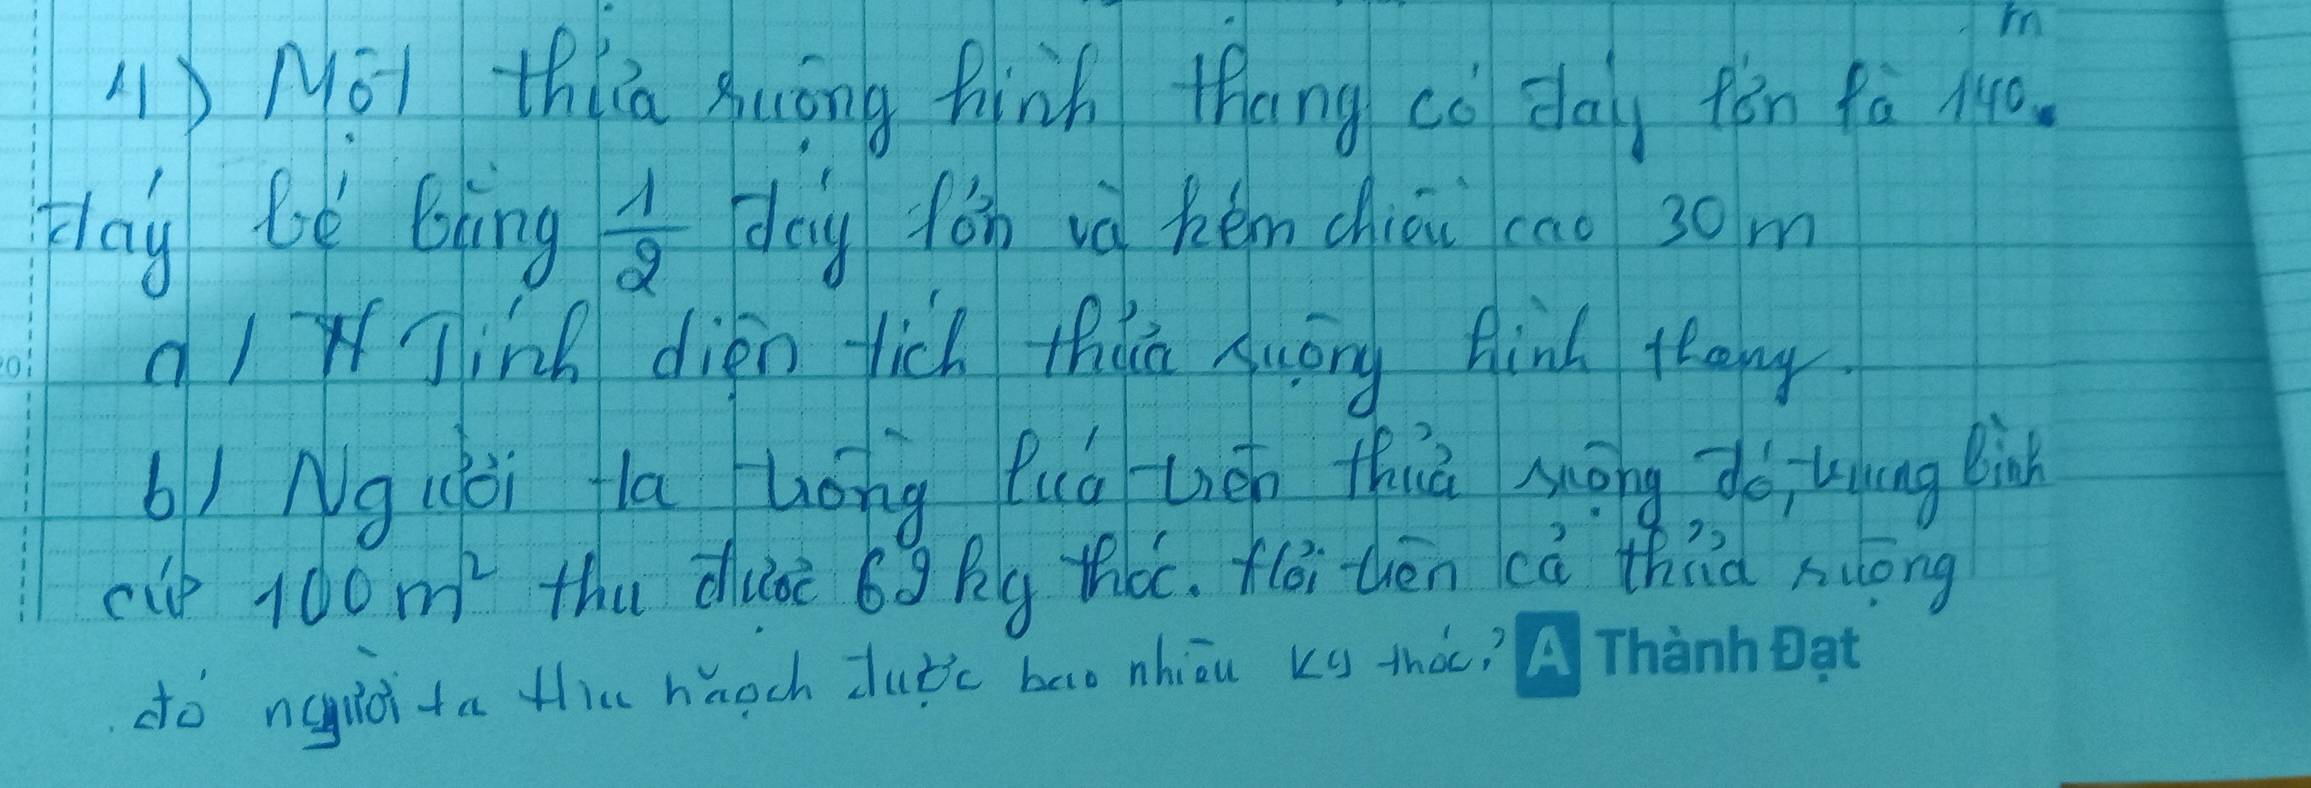 1) Một thửa ruộng hình thang có đáy lớn là 140 m
đáy bé bằng 1/2 đáy lớn và kém chiều cao 30 m
a/ Tính diện tích thửa ruộng hình thang.
b/ Người ta trồng lúa trên thửa ruộng đó, trung bình
cứ 100 m² thu được 69 kg thóc. Hỏi trên cả thửa ruộng
đó người ta thu hoạch được bao nhiêu kg thóc? A Thành Đạt